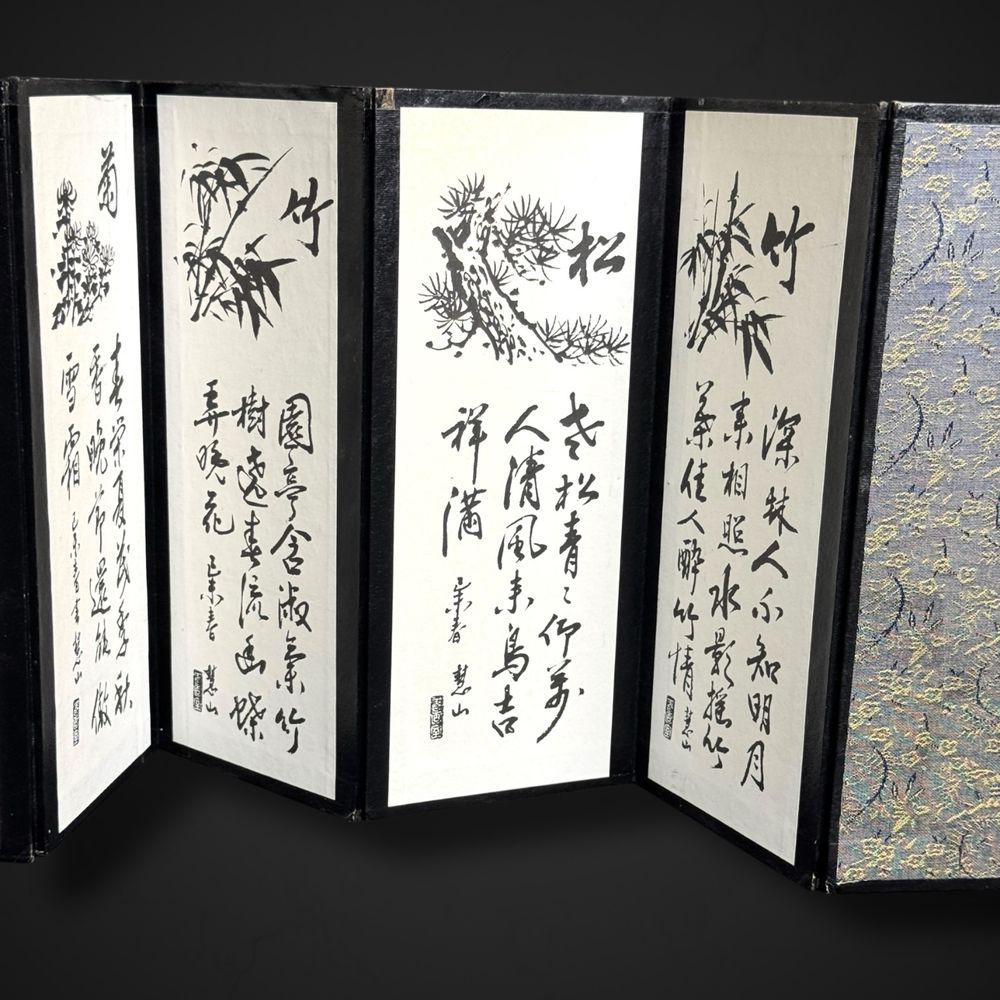 竹
深林人不知明月
来相照水影搖竹
葉佳人醉竹情 慧山
松
老松青〻仰萬
人清風来鳥吉
祥滿 己未春 慧山
竹
園亭含淑氣竹
樹遶春流幽蝶
弄晚花 己未春 慧山
菊
春榮夏茂季秋
香晚節還能傲
雪霜 己未春 慧山